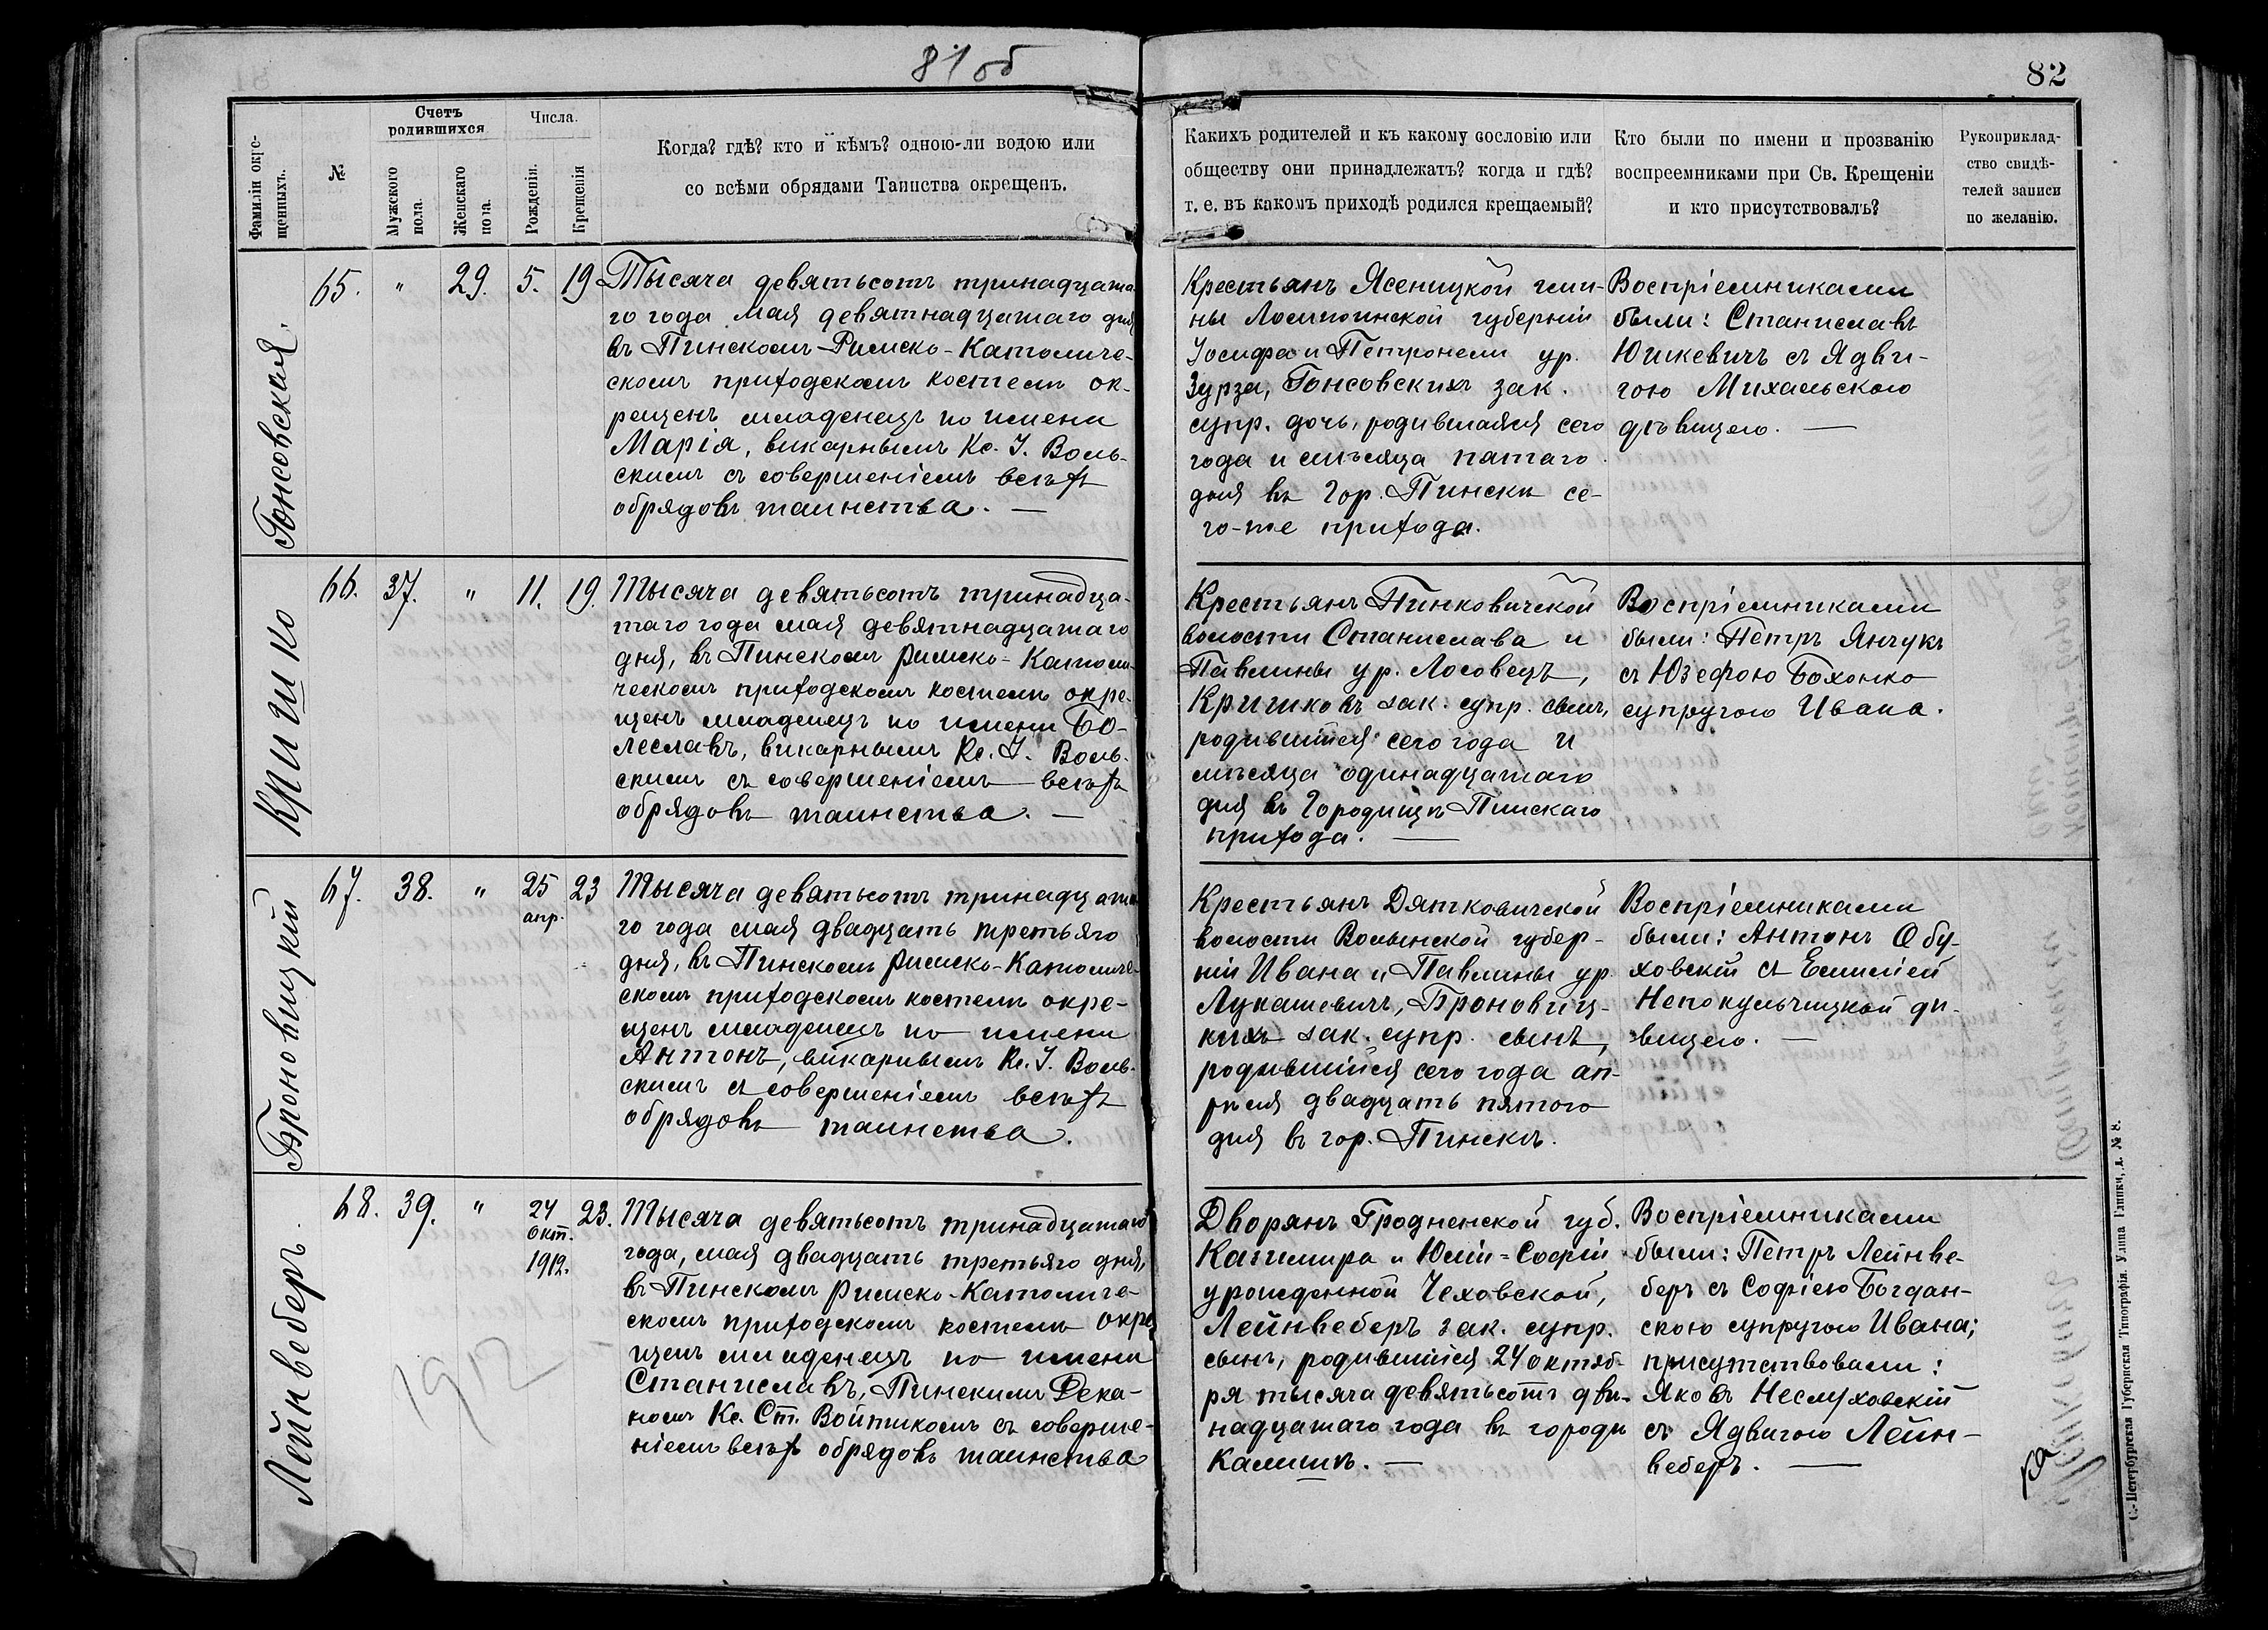 81 об
82
Фамиліи окре-
щенныхъ.
№
Счетъ
родившихся
Мужского
пола.
Женскаго
пола.
Числа.
Рожденія.
Крещенія
Когда? гдѣ? кто и кѣмъ? одною-ли водою или
со всѣми обрядами Таинства окрещенъ.
Какихъ родителей и къ какому сословію или
обществу они принадлежатъ? когда и гдѣ?
т. е. въ какомъ приходѣ родился крещаемый?
Кто были по имени и прозванію
воспреемниками при Св. Крещеніи
и кто присутствовалъ?
Рукоприклад-
ство свидѣ-
телей записи
по желанію.
Гонсовская.
65. " 29. 5. 19
Тысяча девятьсотъ тринадцата-
го года мая девятнадцатаго дня
въ Пинскомъ Римско-Католиче-
скомъ приходскомъ костелѣ ок-
рещенъ младенецъ по имени
Марія, викарнымъ Кс. І. Воль-
скимъ съ совершеніемъ всѣхъ
обрядовъ таинства. —
Крестьянъ Ясеницкой гми-
ны Ломжинской губерніи
Іосифа и Петронели ур.
Зурза, Гонсовскихъ зак.
супр. дочь, родившаяся сего
года и мѣсяца пятаго
дня въ гор. Пинскѣ се-
го-же прихода.
Воспріемниками
были: Станиславъ
Юшкевичъ съ Ядви-
гою Михальскою
дѣвицею. —
Кришко
66. 37. " 11. 19.
Тысяча девятьсотъ тринадца-
таго года мая девятнадцатаго
дня, въ Пинскомъ Римско-Католи-
ческомъ приходскомъ костелѣ окре-
щенъ младенецъ по имени Бо-
леславъ, викарнымъ Кс. І. Воль-
скимъ съ совершеніемъ всѣхъ
обрядовъ таинства. —
Крестьянъ Пинковичской
волости Станислава и
Павлины ур. Лосовецъ,
Кришковъ зак. супр. сынъ,
родившійся сего года и
мѣсяца одинадцатаго
дня въ Городищѣ Пинскаго
прихода. —
Воспріемниками
были: Петръ Янчукъ
съ Юзефою Бохонко
супругою Ивана.
Броновицкій
67. 38. " 25 23
апр.
Тысяча девятьсотъ тринадцата
го года мая двадцать третьяго
дня, въ Пинскомъ Римско-Католиче-
скомъ приходскомъ костелѣ окре-
щенъ младенецъ по имени
Антонъ, викарнымъ Кс. І. Воль-
скимъ съ совершеніемъ всѣхъ
обрядовъ таинства.
Крестьянъ Дятковичской
волости Волынской губер-
ніи Ивана и Павлины ур.
Лукашевичъ, Броновиц-
кихъ зак. супр. сынъ,
родившійся сего года ап-
рѣля двадцать пятого
дня въ гор. Пинскѣ.
Воспріемниками
были: Антонъ Обу-
ховскій съ Емиліей
Непокульчицкой дѣ-
вицею. —
Лейнвеберъ.
68. 39. " 24 23.
окт.
1912.
1912
Тысяча девятьсотъ тринадцатаго
года, мая двадцать третьяго дня,
въ Пинскомъ Римско-Католиче-
скомъ приходскомъ костелѣ окре
щенъ младенецъ по имени
Станиславъ, Пинскимъ Дека-
номъ Кс. Ст. Войтикомъ съ соверше-
ніемъ всѣхъ обрядовъ таинства
Дворянъ Гродненской губ.
Казимира и Юліи-Софіи
урожденной Чеховской,
Лейнвеберъ зак. супр.
сынъ, родившійся 24 октяб-
ря тысяча девятьсотъ двѣ-
надцатаго года въ городѣ
Калишѣ. —
Воспріемниками
были: Петръ Лейнве-
беръ съ Софіею Богдан-
скою супругою Ивана;
присутствовали:
Яковъ Неслуховскій
съ Ядвигою Лейн-
веберъ. —
С.-Петербургская Губернская Типографія. Улица Глинки, д. № 8.